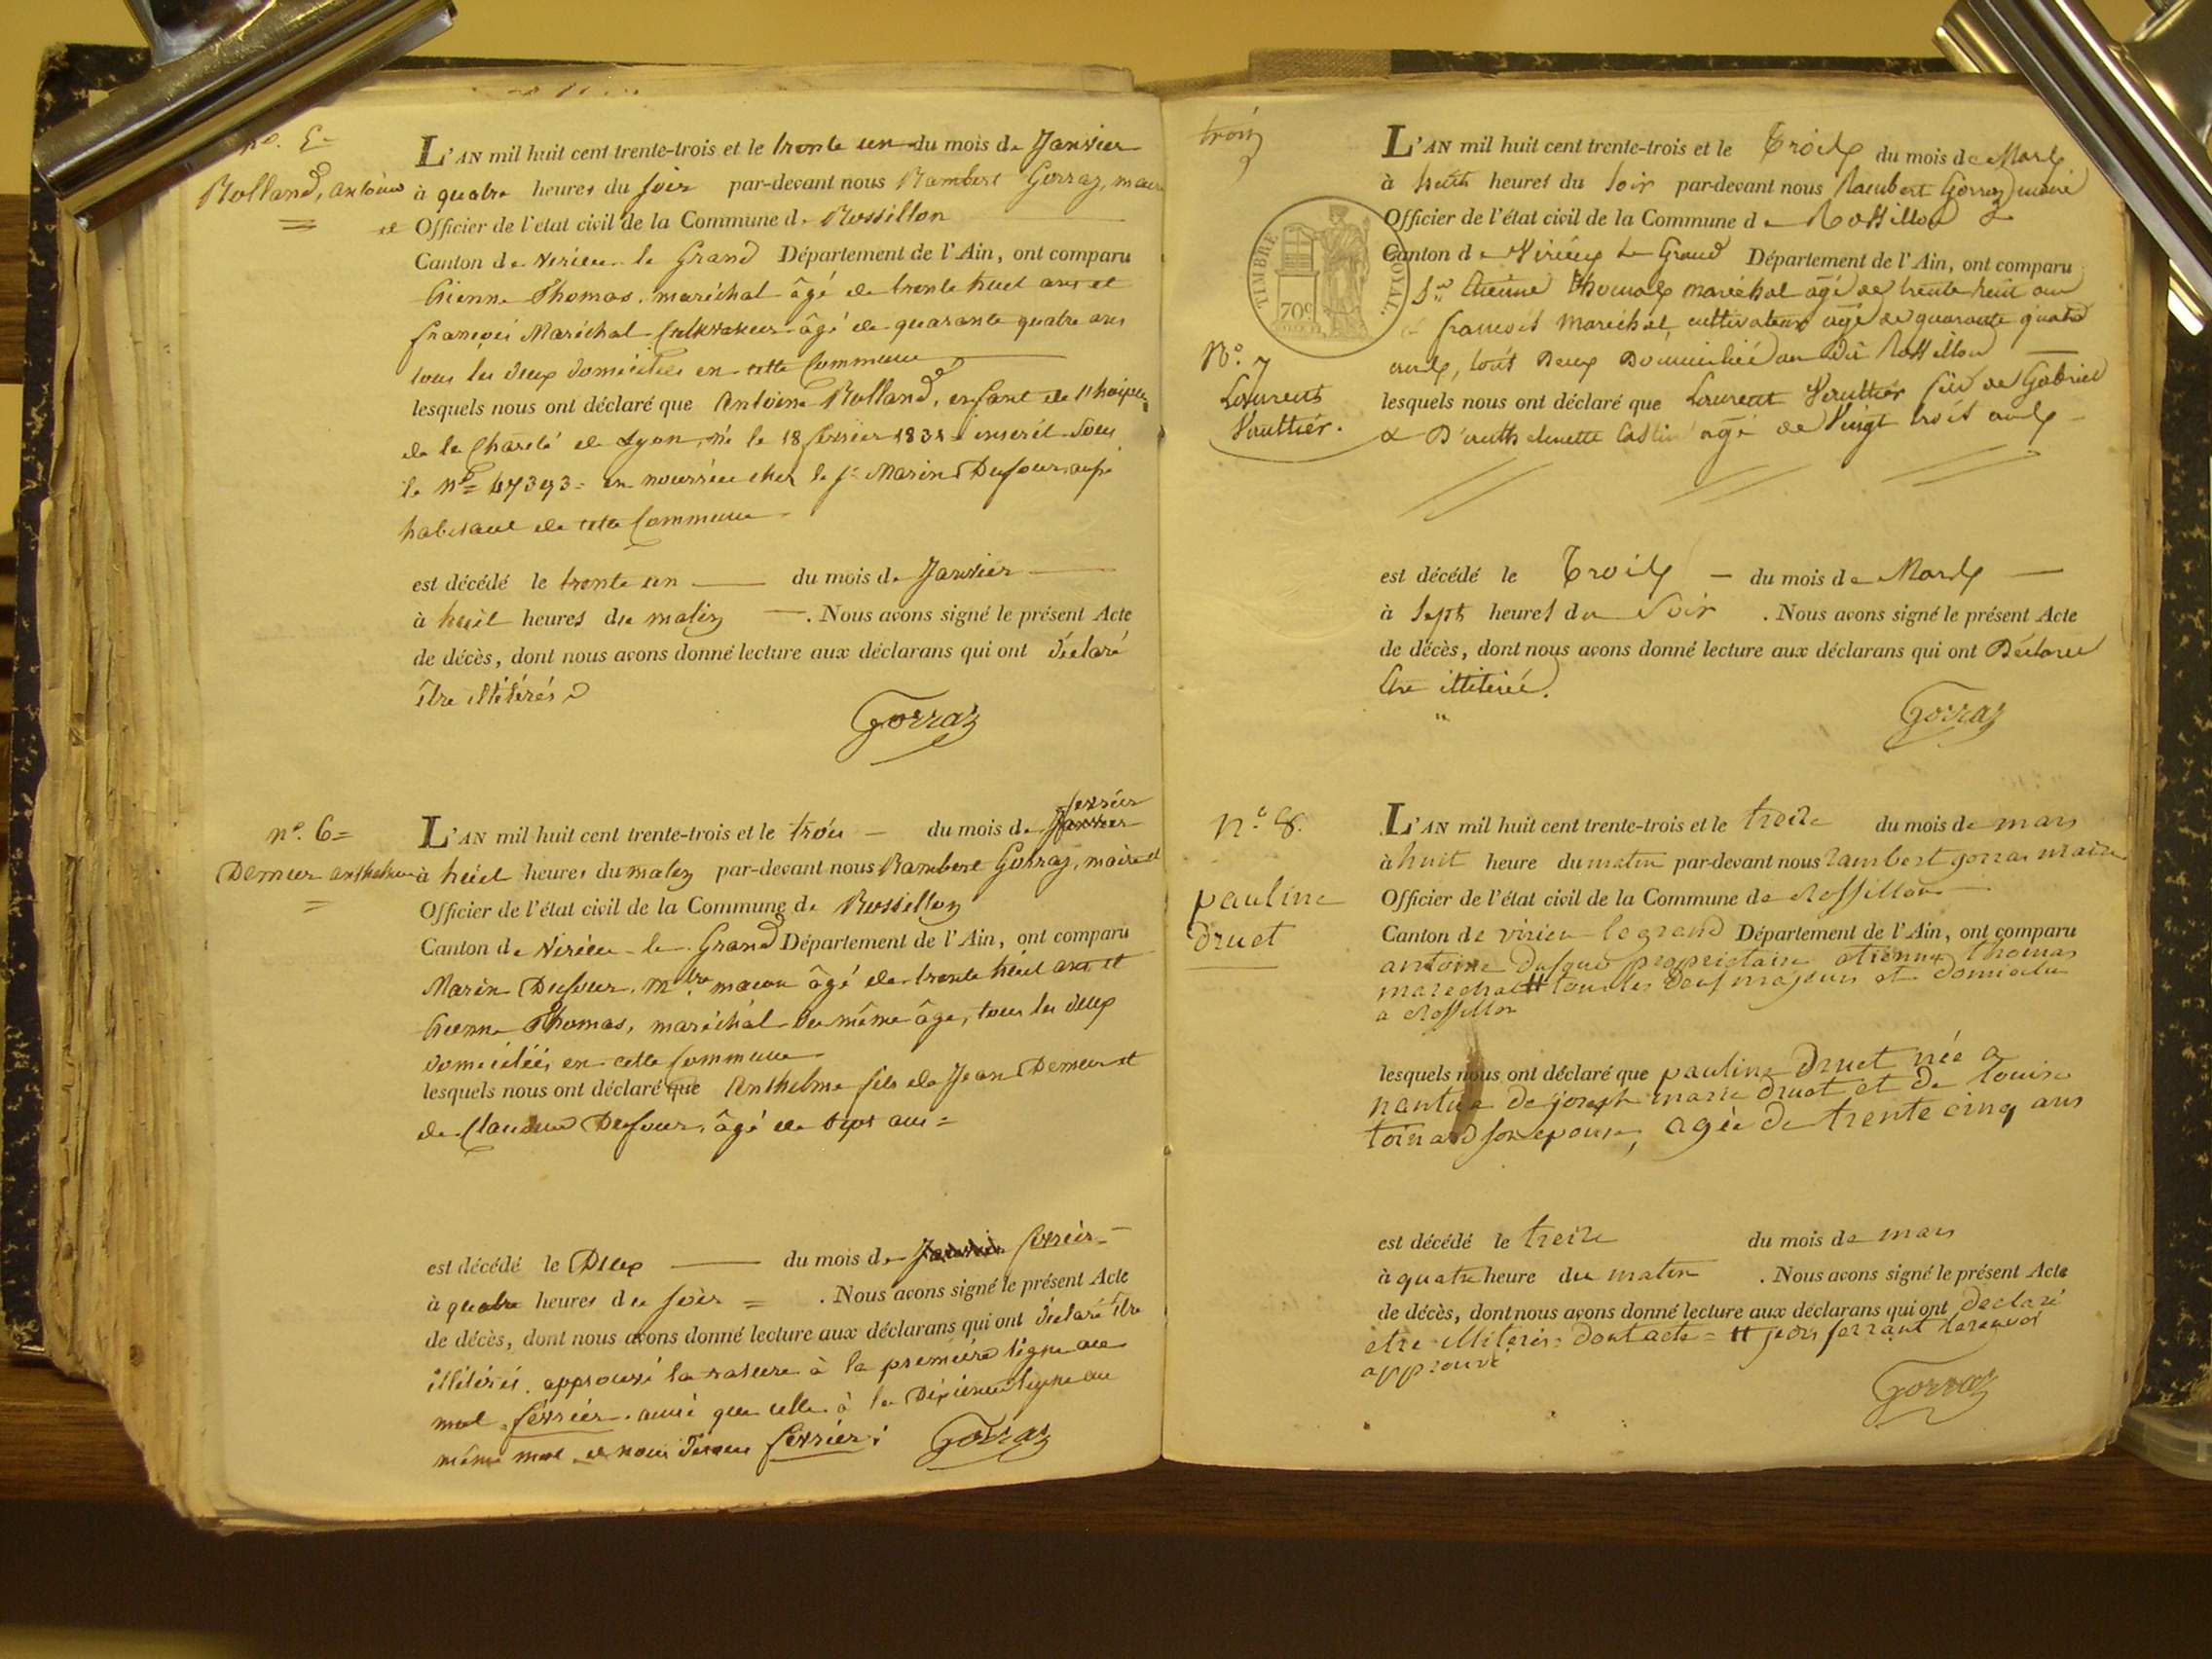 n°. 5=
Rolland, antoine
=
L'AN mil huit cent trente-trois et le trente un du mois de Janvier
à quatre heures du soir par-devant nous Rambert Gorraz, maire
et Officier de l'état civil de la Commune de Rossillon
Canton de Virieu le Grand Département de l'Ain, ont comparu
Etienne Thomas, maréchal âgé de trente huit ans et
françois Maréchal Cultivateur âgé de quarante quatre ans
tous les deux domiciliés en cette Commune
lesquels nous ont déclaré que Antoine Rolland, enfant de l'hospice
de la Charité de Lyon, né le 18 fevrier 1831 inscrit sous
le n°= 47393= en nourrice chez le s. Marin Dufour, aussi
habitant de cette Commune
est décédé le trente un du mois de Janvier
à huit heures du matin . Nous avons signé le présent Acte
de décès, dont nous avons donné lecture aux déclarans qui ont déclaré
être illitérés
Gorraz
n°. 6=
Demeur anthelme
=
fevrier
L'AN mil huit cent trente-trois et le trois du mois de Janvier
à huit heures du matin par-devant nous Rambert Gorraz, maire et
Officier de l'état civil de la Commune de Rossillon
Canton de Virieu le Grand Département de l'Ain, ont comparu
Marin Dufour, mtre maçon âgé de trente huit ans et
Etienne Thomas, maréchal du même âge, tous les deux
domiciliés en cette Commune
lesquels nous ont déclaré que Anthelme fils de Jean Demeur et
de Claudine Dufour, âgé de sept ans=
est décédé le Deux du mois de Janvier fevrier
à quatre heures du soir = . Nous avons signé le présent Acte
de décès, dont nous avons donné lecture aux déclarans qui ont déclaré être
illitérés. approuvé la rature à la première ligne au
mot fevrier. ainsi que celle à la Dixième ligne au
même mot fevrier:
Gorraz
trois
TIMBRE ROYAL.
70c
N°. 7
Laurent
Vauttier.
L'AN mil huit cent trente-trois et le Trois du mois de Mars
à huit heures du soir par-devant nous Rambert Gorraz maire
Officier de l'état civil de la Commune de Rossillon
Canton de Virieux Le Grand Département de l'Ain, ont comparu
Sr. Etienne Thomas maréchal âgé de trente huit ans
françois Maréchal, cultivateur agé de quarante quatre
ans, tous Deux Domiciliés au dit Rossillon
lesquels nous ont déclaré que Laurent Vauttier fils de Gabriel
& D'anthelmette agé de Vingt trois ans
est décédé le Trois du mois de Mars
à sept heures du Soir . Nous avons signé le présent Acte
de décès, dont nous avons donné lecture aux déclarans qui ont Déclaré
être illitéré.
"
Gorraz
n°. 8.
pauline
druet
L'AN mil huit cent trente-trois et le treize du mois de mars
à huit heure du matin par-devant nous rambert gorraz maire
Officier de l'état civil de la Commune de Rossillon
Canton de virieu le grand Département de l'Ain, ont comparu
antoine propriétaire etienne thomas
marechal # tous les deux majeurs et domicilié
a Rossillon
lesquels nous ont déclaré que pauline Druet née a
nantua de joseph marie druet et de louise
toinard son epouse, agée de trente cinq ans
est décédé le treize du mois de mars
à quatre heure du matin . Nous avons signé le présent Acte
de décès, dont nous avons donné lecture aux déclarans qui ont declaré
etre illiterés dont acte = # le renvoi
approuvé
Gorraz